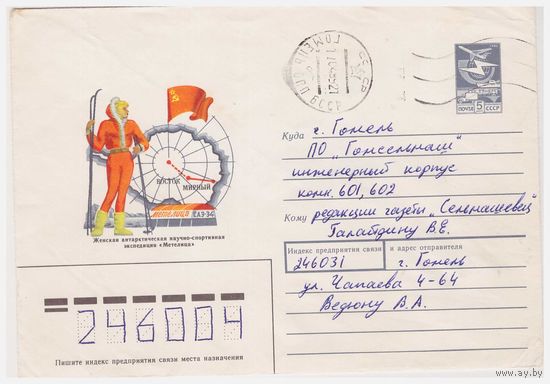 ПОЧТА 5 СССР
Куда г. Гомель
ПО "Гомсельмаш"
инженерный корпус
комн. 601, 602
Кому редакции газеты "Сельмашевец"
Галайдину В.Е.
Индекс предприятия связи и адрес отправителя
246031 г. Гомель
ул. Чапаева 4-64
Ведюну В.А.
ВОСТОК
МИРНЫЙ
МЕТЕЛИЦА САЭ-34
Женская антарктическая научно-спортивная
экспедиция «Метелица»
246004
Пишите индекс предприятия связи места назначения
www.ay.by